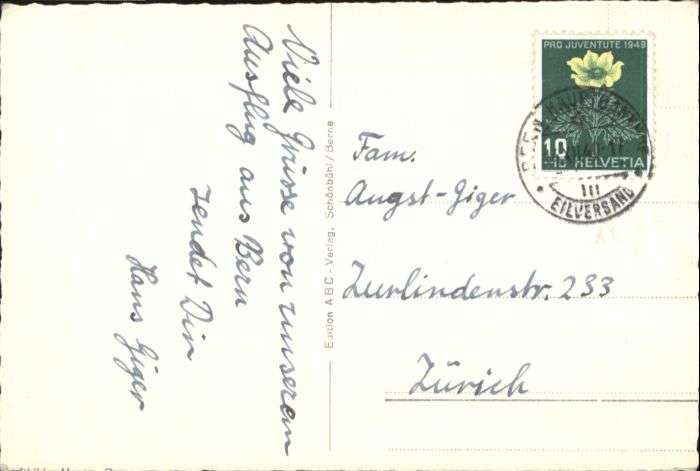 Viele Grüsse von unserem
Ausflug aus Bern
sendet Dir
Hans Giger
Edition ABC - Verlag, Schönbühl/Berne
PRO JUVENTUTE 1949
10
+10 HELVETIA
III
EILVERSAND
Fam.
Angst-Giger
Zurlindenstr. 233
Zürich